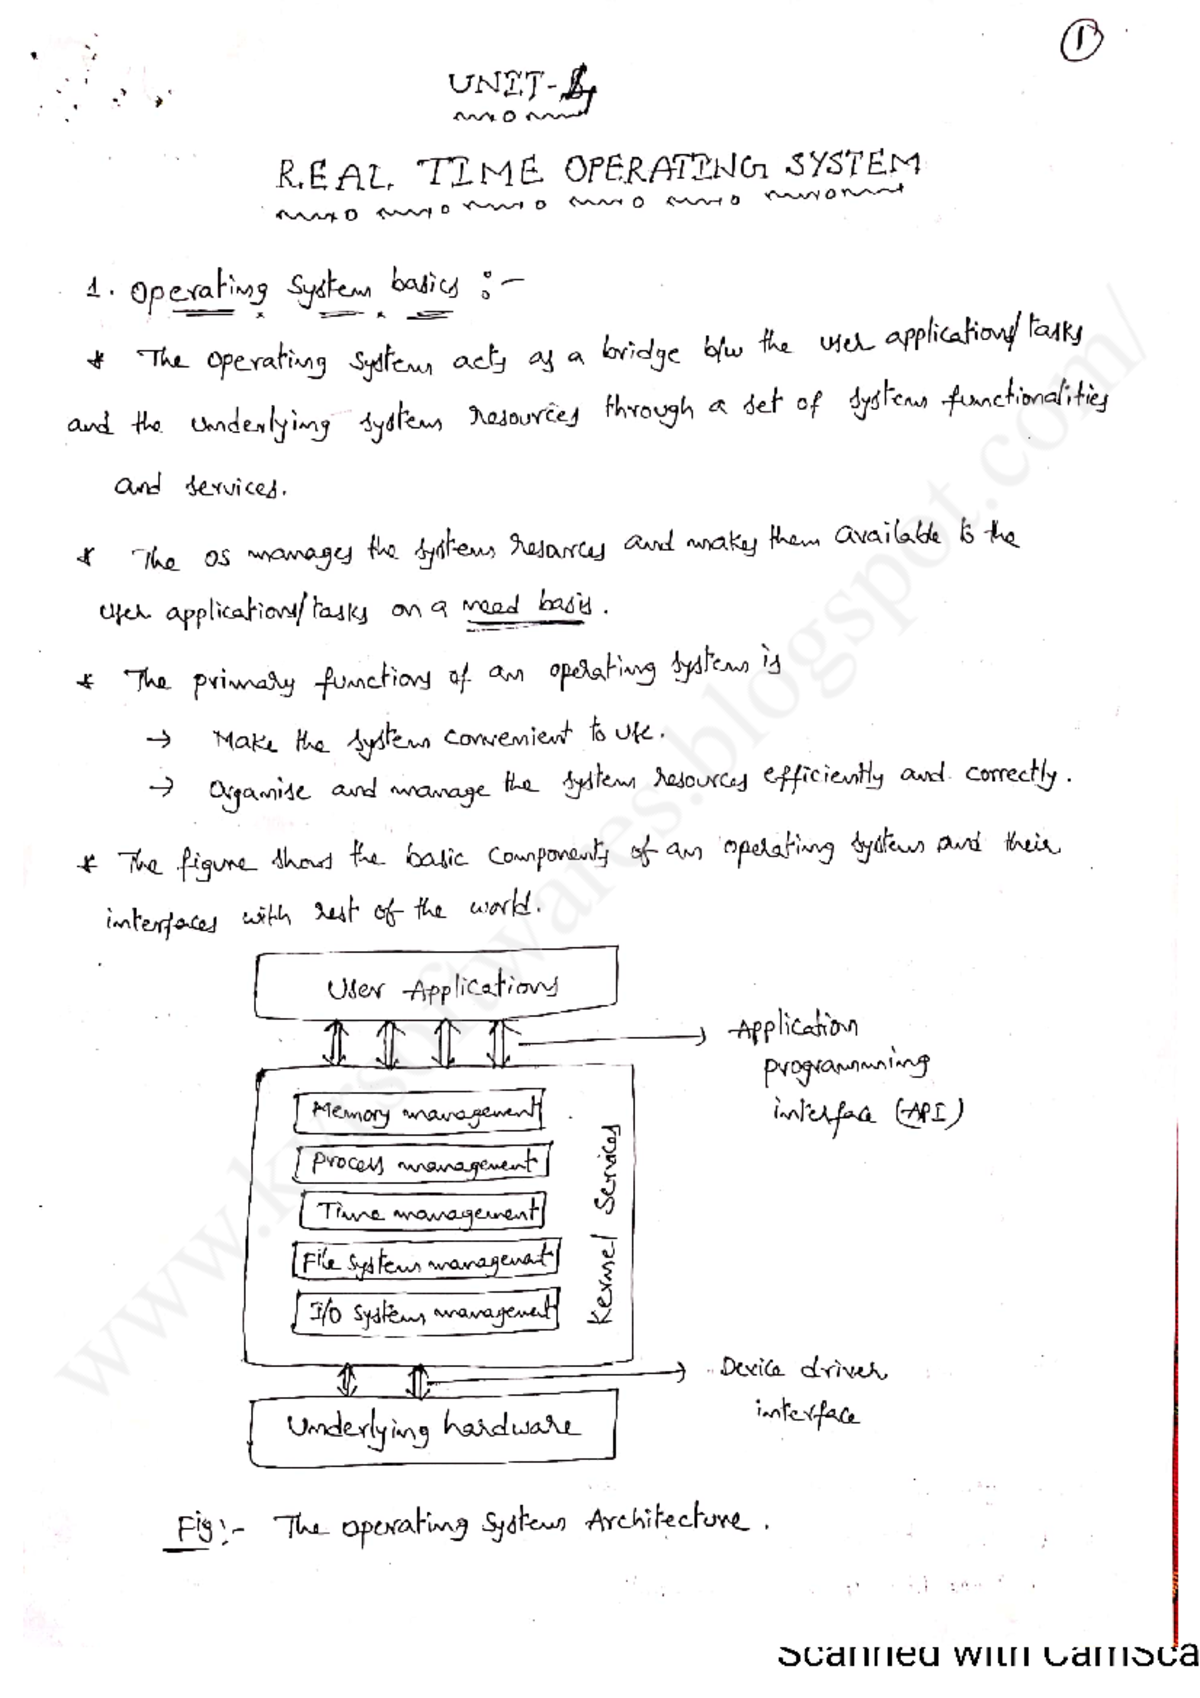 1
UNIT-
REAL TIME OPERATING SYSTEM
1. Operating System basics :-
* The operating system acts as a bridge b/w the user applications/tasks
and the underlying system resources through a set of system functionalities
and services.
* The OS manages the system resources and makes them available to the
user applications/tasks on a need basis.
* The primary functions of an operating system is
→ Make the system convenient to use.
→ Organise and manage the system resources efficiently and correctly.
* The figure shows the basic components of an operating system and their
interfaces with rest of the world.
User Applications
Application
programming
interface (API)
Memory management
Process management
Time management
File system management
I/O system management
Kernel Services
Device driver
interface
Underlying hardware
Fig:- The Operating System Architecture.
www.kvrsoftwares.blogspot.com/
Scanned with CamSca